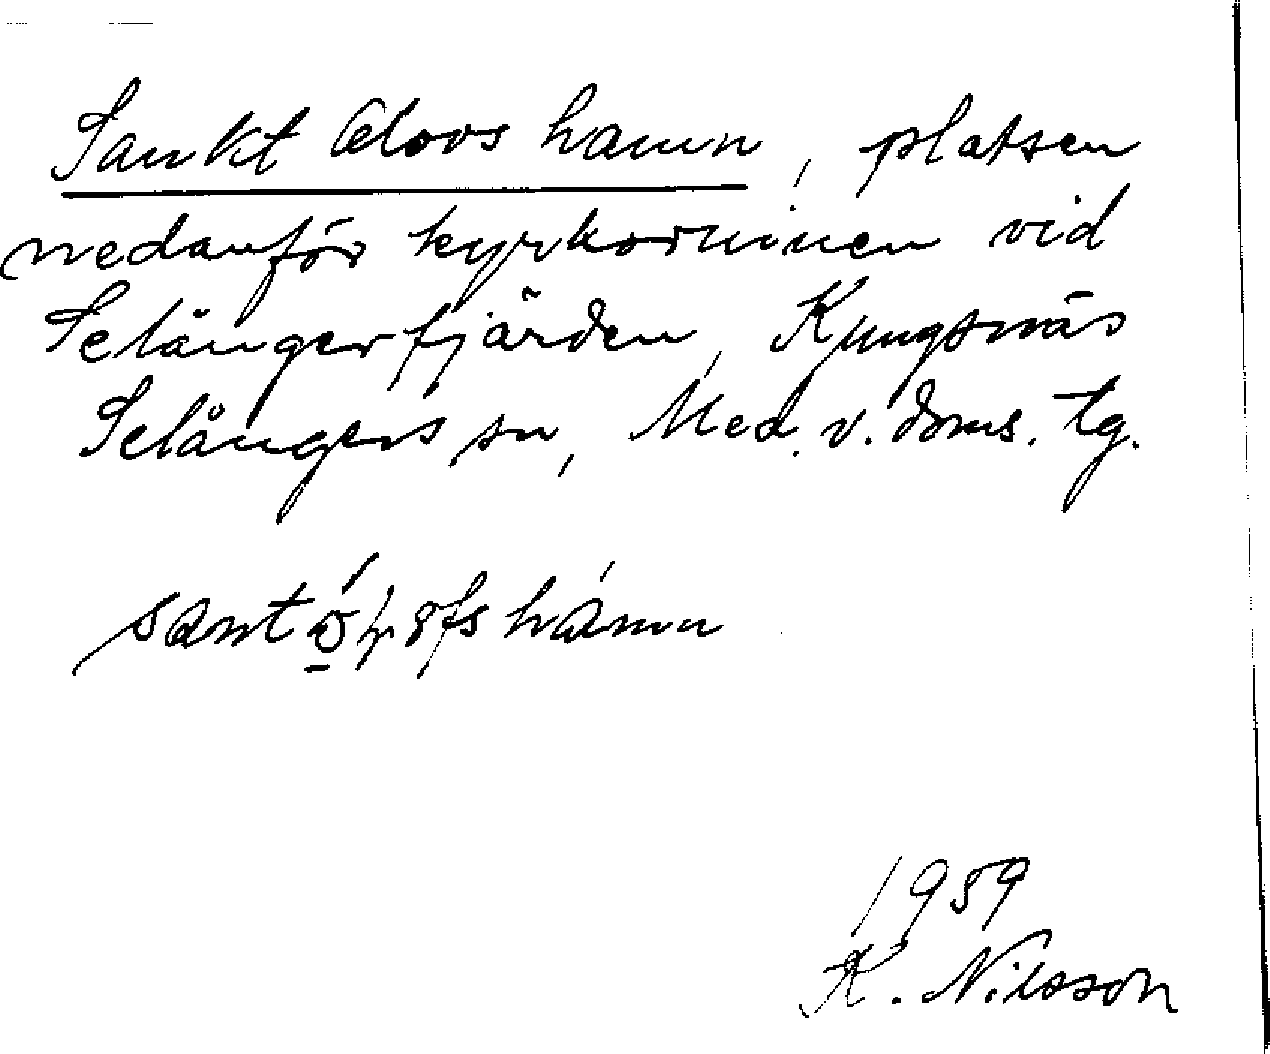 Sankt Olovs hamn, platsen
nedanför kyrkoruinen vid
Selångerfjärden, Kungsnäs
Selångers sn, Med. v. doms. tg.
hámn
1959
K. Nilsson